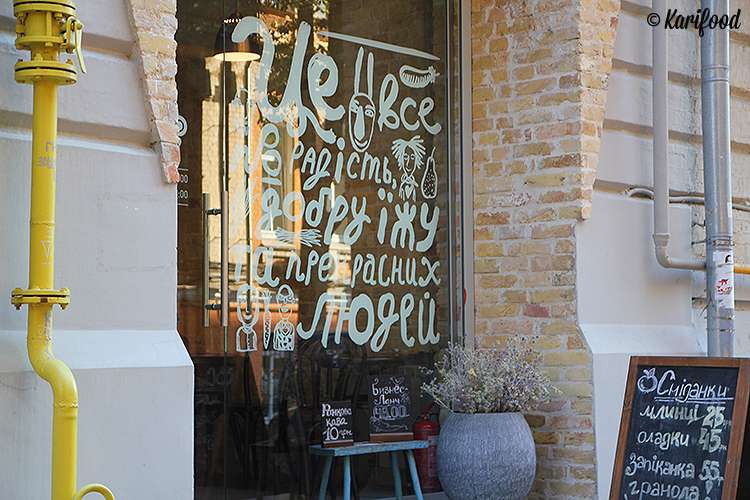 © Karifood
Це все
про радість,
добру їжу
та прекрасних
людей
Ранкова
кава
10 грн.
Бизнес-
Ленч
Сніданки
млинці 25
оладки 45
запіканка 55
гранола